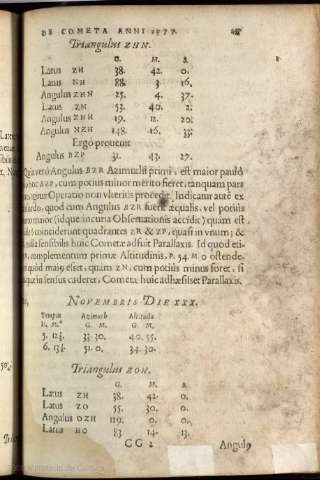 DE COMETA ANNI 1577.
Triangulus ZHN.
G. M. S.
Latus ZH 38. 42. 0.
Latus NH 88. 3. 16.
Angulus ZHN 25. 4. 37.
Latus ZN 53. 40. 2.
Angulus ZHN 19. 12. 20.
Angulus NZH 148. 16. 33.
Ergo provenit
Angulus BZP 31. 43. 27.
Quia verò Angulus BZR Azimuthi primi, est maior paulò
BZP, cum potius minor merito fieret, tanquam pars
Operatio non ulterius procedit. Indicatur autē ex
quod cum Angulus BZR fuerit æqualis, vel potius
maior (idque incuria Observationis accidit) quam est
coinciderunt quadrantes ZR & ZP, quasi in unum; &
sensibilis huic Cometæ adfuit Parallaxis. Id quod eti-
complementum primæ Altitudinis, P. 54. M 0 ostende-
quod maius esset, quàm ZN, cum potius minus foret, si
sensus caderet, Cometæ huic adhæsisset Parallaxis.
NOVEMBRIS DIE XXX.
Tempus Azimuth Altitudo
H. M. G. M. G. M.
5. 12½. 33. 30. 40. 55.
6. 13¼. 51. 0. 34. 30.
Triangulus ZOH.
G. M. S.
Latus ZH 38. 42. 0.
Latus ZO 55. 30. 0.
Angulus OZH 119. 0. 0.
Latus HO 83. 14. 13.
GG 2 Angulꝰ